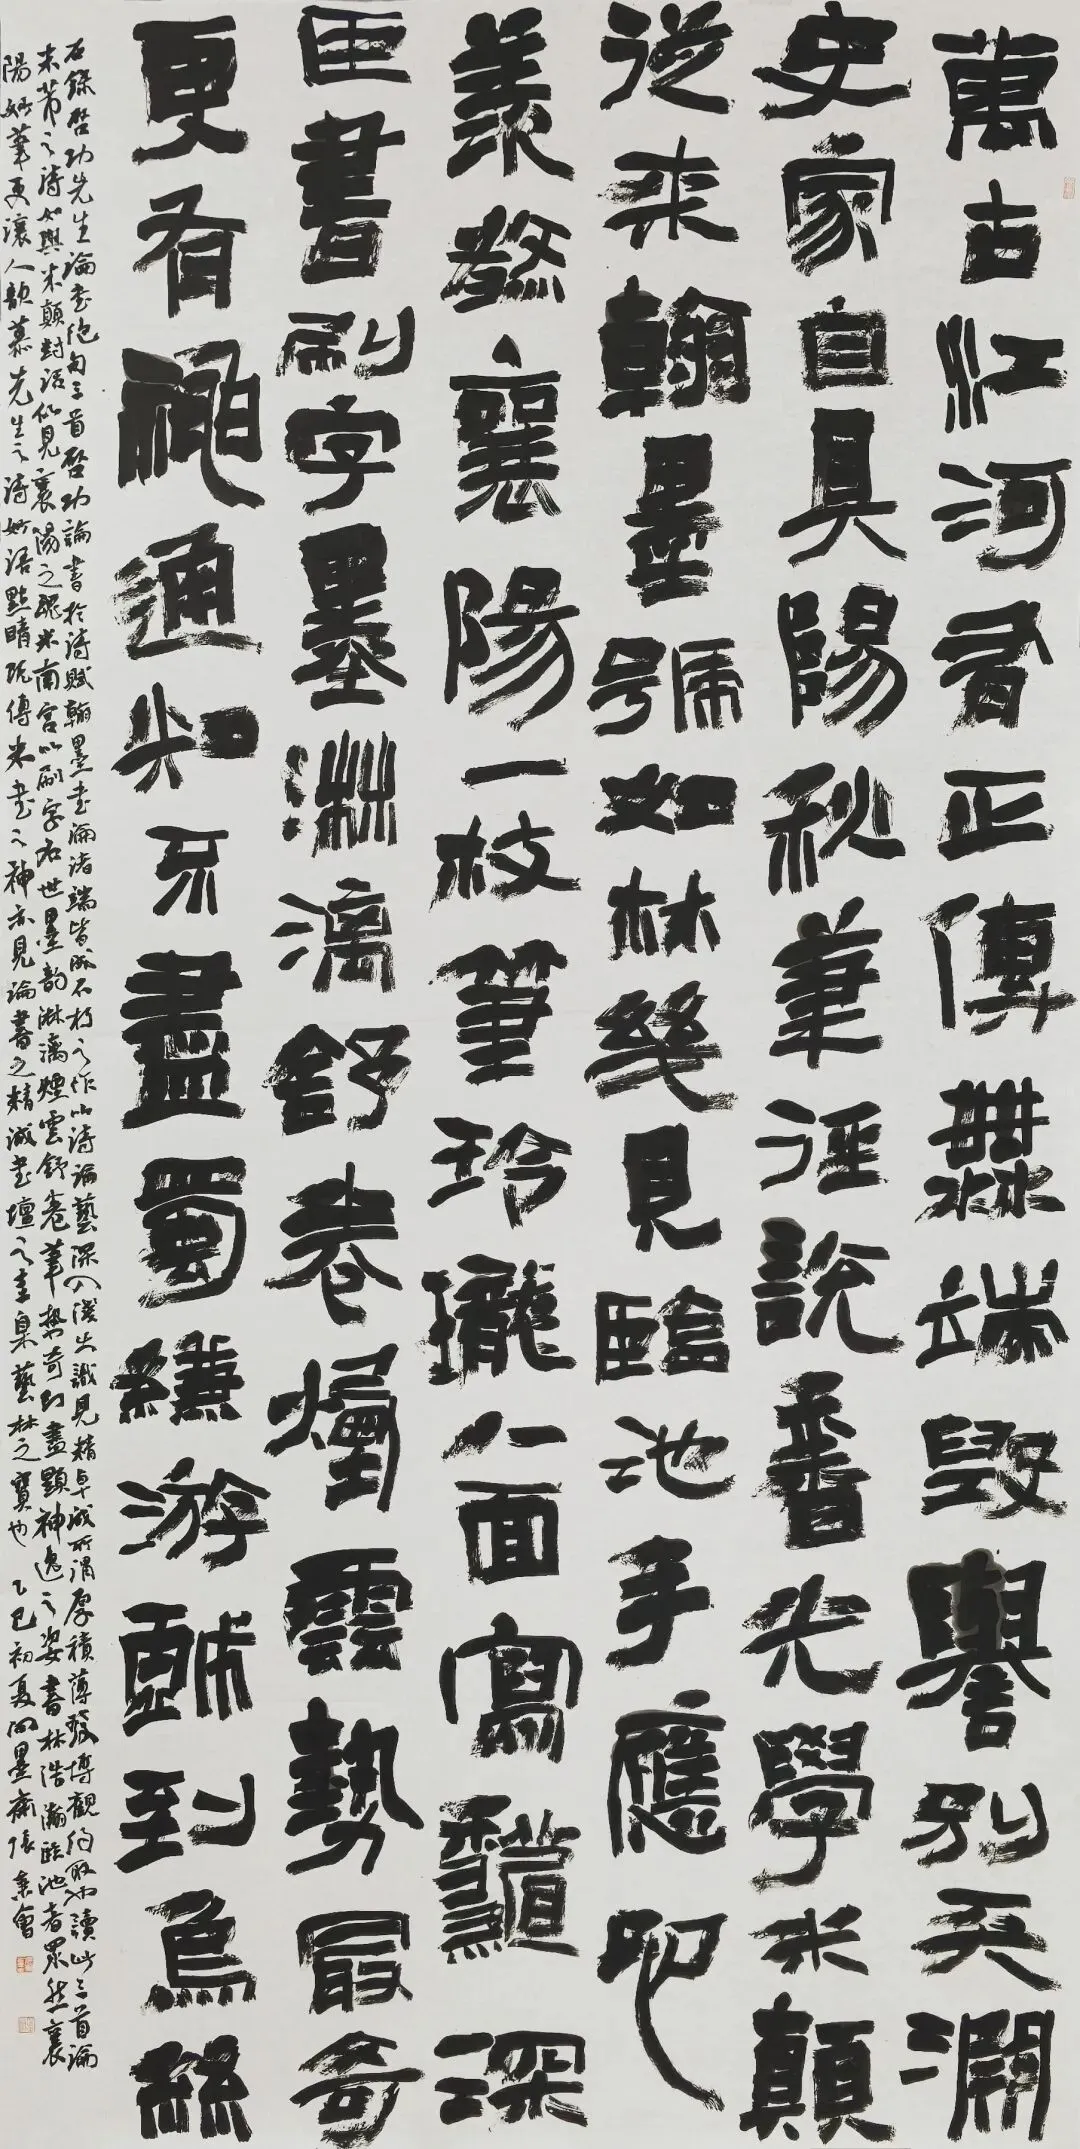 萬古江河有正傳無端毀譽別天淵
史家自具陽秋筆徑說香光學米顛
從來翰墨號如林幾見臨池手應心
羨煞襄陽一枝筆玲瓏八面寫齷深
臣書刷字墨淋漓舒卷煙雲勢最奇
更有神通知不盡蜀縑游戲到烏絲
右錄啟功先生論書絕句三首啟功論書於詩賦翰墨書論諸端皆成不朽之作以詩論藝深入淺出識見精卓誠所謂厚積薄發博觀約取也讀此三首論
米芾之詩如與米顛對語似見襄陽之魂米南宮以刷字名世墨韵淋漓煙雲舒卷筆勢奇幻盡顯神逸之姿書林浩瀚臨池者眾然襄
陽妙筆更讓人歆慕先生之詩妙語點睛既傳米書之神亦見論書之精誠書壇之圭臬藝林之寶也 乙巳初夏 墨齋張 會